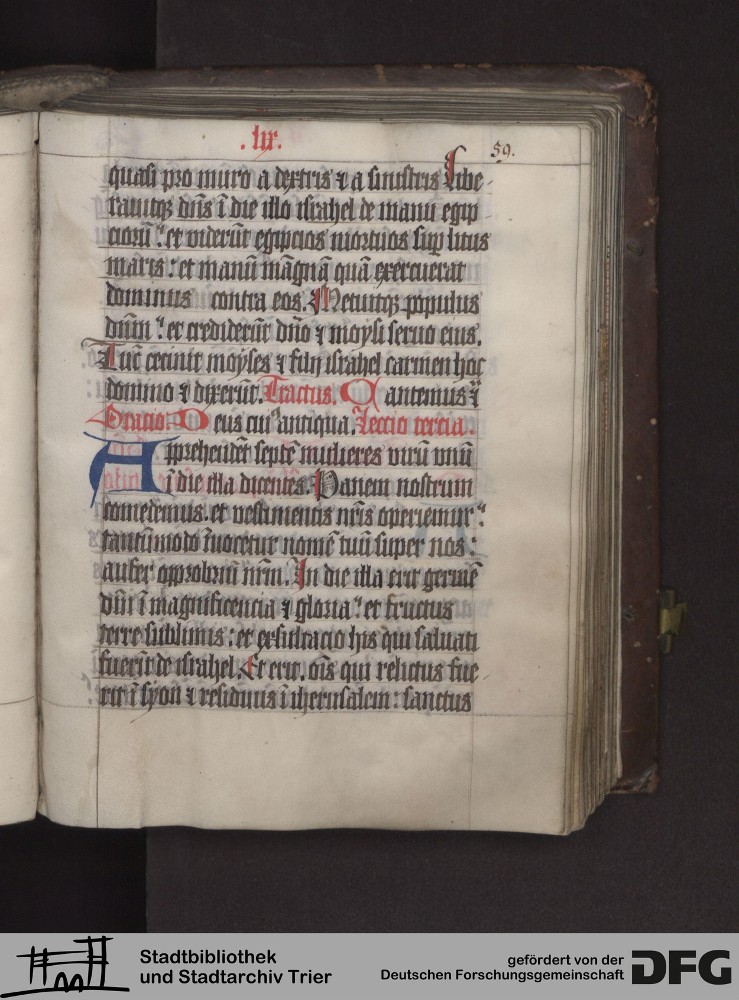 .lix. 59.
quasi pro muro a dextris ⁊ a sinistris Libe-
rauitqꝫ dn̄s ī die illo israhel de manu egip-
cioꝝ: et viderūt egipcios mortuos sup litus
maris: et manū māgnā quā exercuerat
dominus contra eos. Metuitqꝫ populus
dn̄m: et crediderūt dn̄o ⁊ moysi seruo eius.
Tūc cecinit moyses ⁊ filij israhel carmen hoc
domino ⁊ dixerūt. Tractus. Cantemus
Oracio. Deus cuiꝰ antiqua. Leccio tercia.
Apprehendēt septē mulieres virū vnū
ī die illa dicentes. Panem nostrum
comedemus. et vestimentis nr̄is operiemur:
tantūmodo īuocetur nomē tuū super nos:
aufer opprobriū nr̄m. In die illa erit germē
dn̄i ī magnificencia ⁊ gloria: et fructus
terre sublimis: et exsultacio his qui saluati
fuerīt de israhel. Et erit. oīs qui relictus fue-
rit ī syon ⁊ residuus ī iherusalem: sanctus
Stadtbibliothek
und Stadtarchiv Trier
gefördert von der
Deutschen Forschungsgemeinschaft
DFG